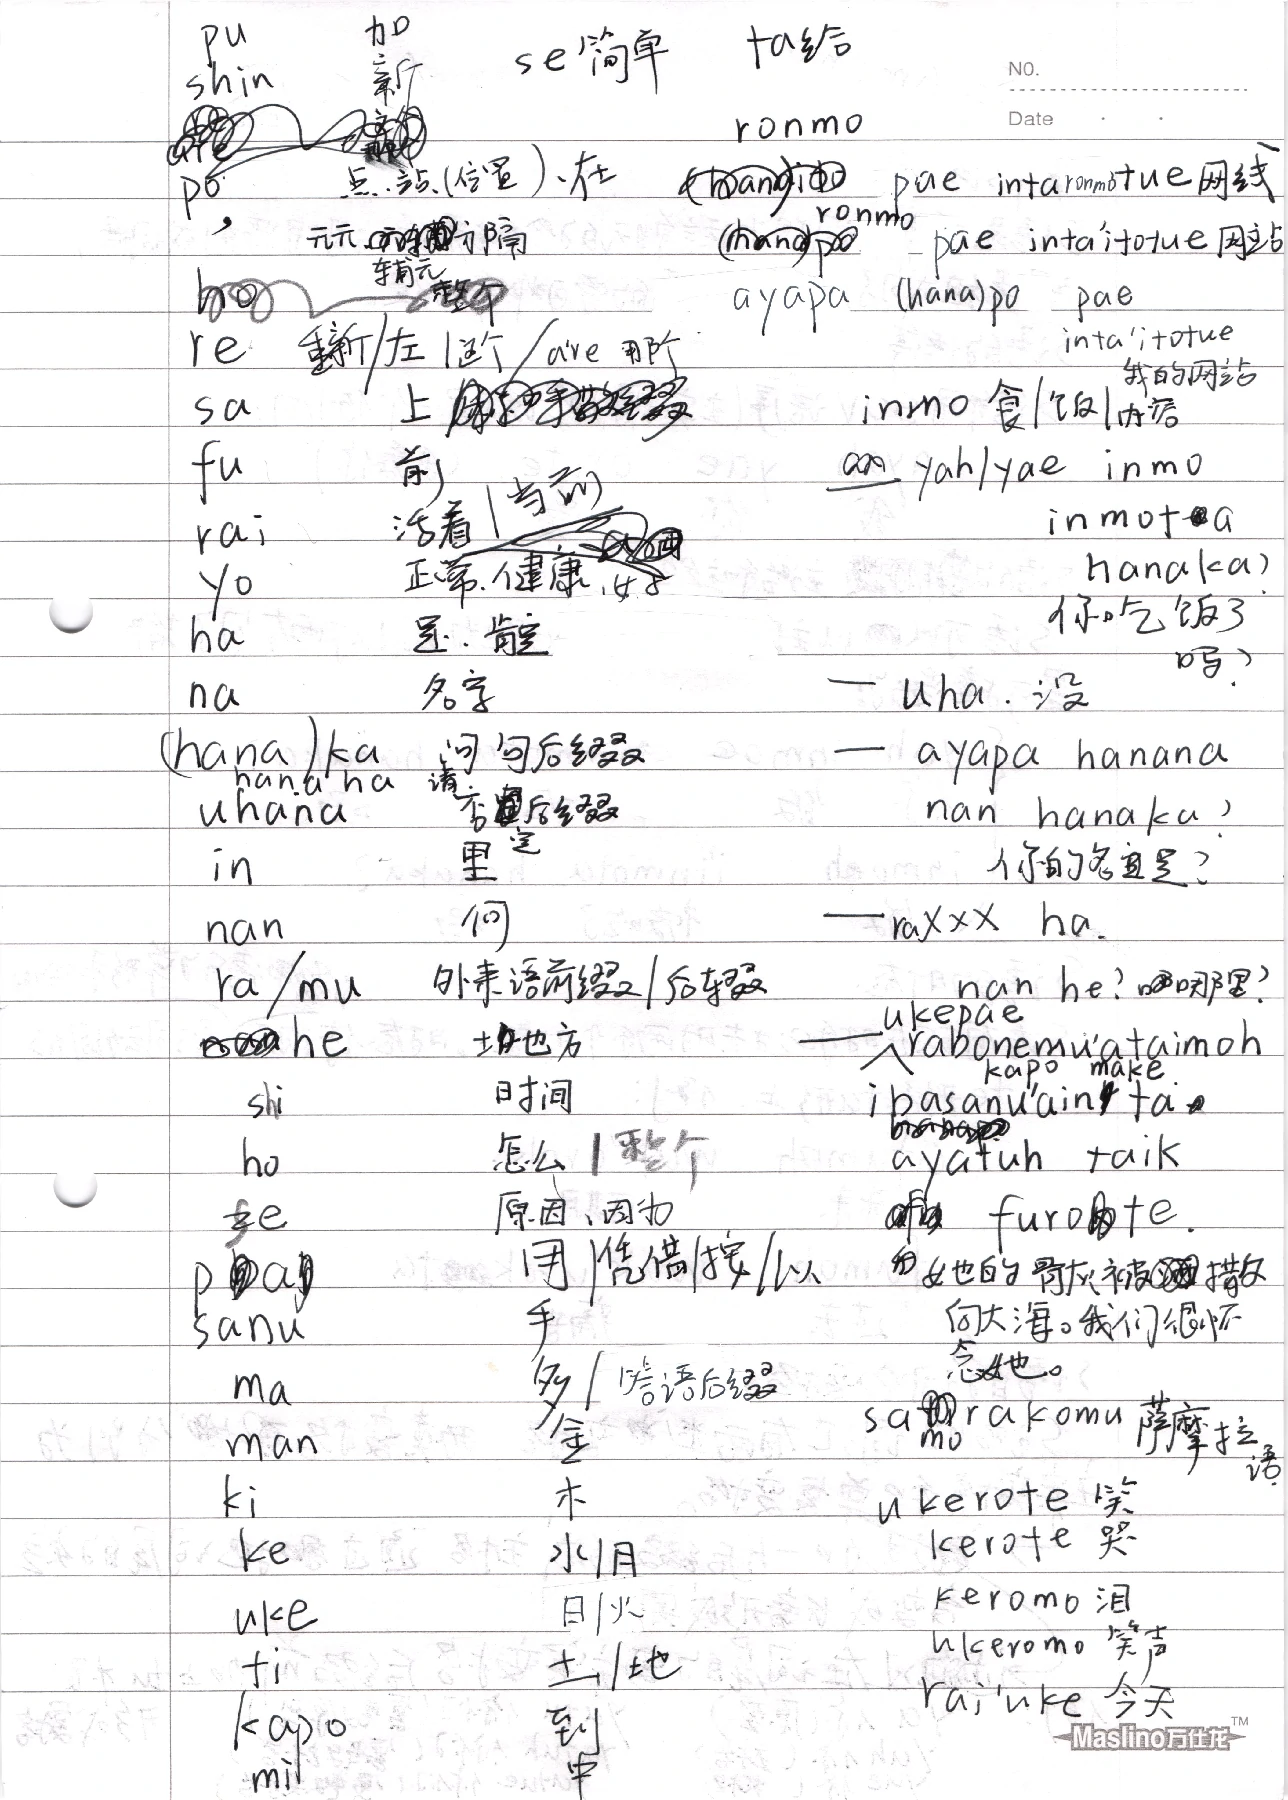 pu 加
shin 新
se 简单 ta给
NO.
Date
ronmo
po 点.站.(位置).在
pae intaronmotue网线
ronmo
, 元元 分隔
辅元
(hana)po pae inta'itotue网站
ho 整个
ayapa (hana)po pae
inta'itotue
我的网站
re 重新/左/这个/are 那个
sa 上
inmo 食/饭/内容
fu 前
yah/yae inmo
rai 活着/当前
inmot a
yo 正常.健康.好
hanaka?
ha 是.肯定
你吃饭了
吗?
na 名字
— uha. 没
(hana)ka 问句后缀
— ayapa hanana
hanaha 请
uhana 否定后缀
nan hanaka?
in 里
你的名字是?
nan 何
— raXXX ha.
ra/mu 外来语前缀/后缀
nan he? 哪里?
he 地方
ukepae
— rabonemu'ataimoh
kapo make
shi 时间
ibasanu'ain ta
ho 怎么/整个
ayatuh taik
se 原因、因为
furo te.
pa 用/凭借/按/以
她的骨灰被撒
sanu 手
向大海。我们很怀
念她。
ma 多/答语后缀
sa mo rakomu 萨摩拉语
man 金
ki 木
ukerote 笑
ke 水/月
kerote 哭
uke 日/火
keromo 泪
ukeromo 笑声
ti 土/地
rai'uke 今天
kapo 到
Maslino万仕龙™
mi 中